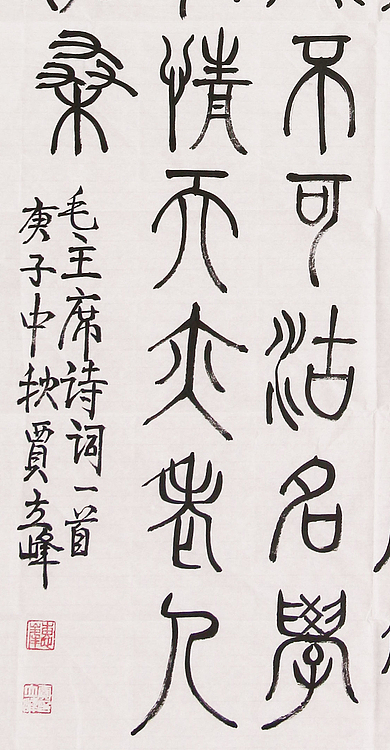 不可沽名學
情天亦老人
桑
毛主席诗词一首
庚子中秋賈立峰